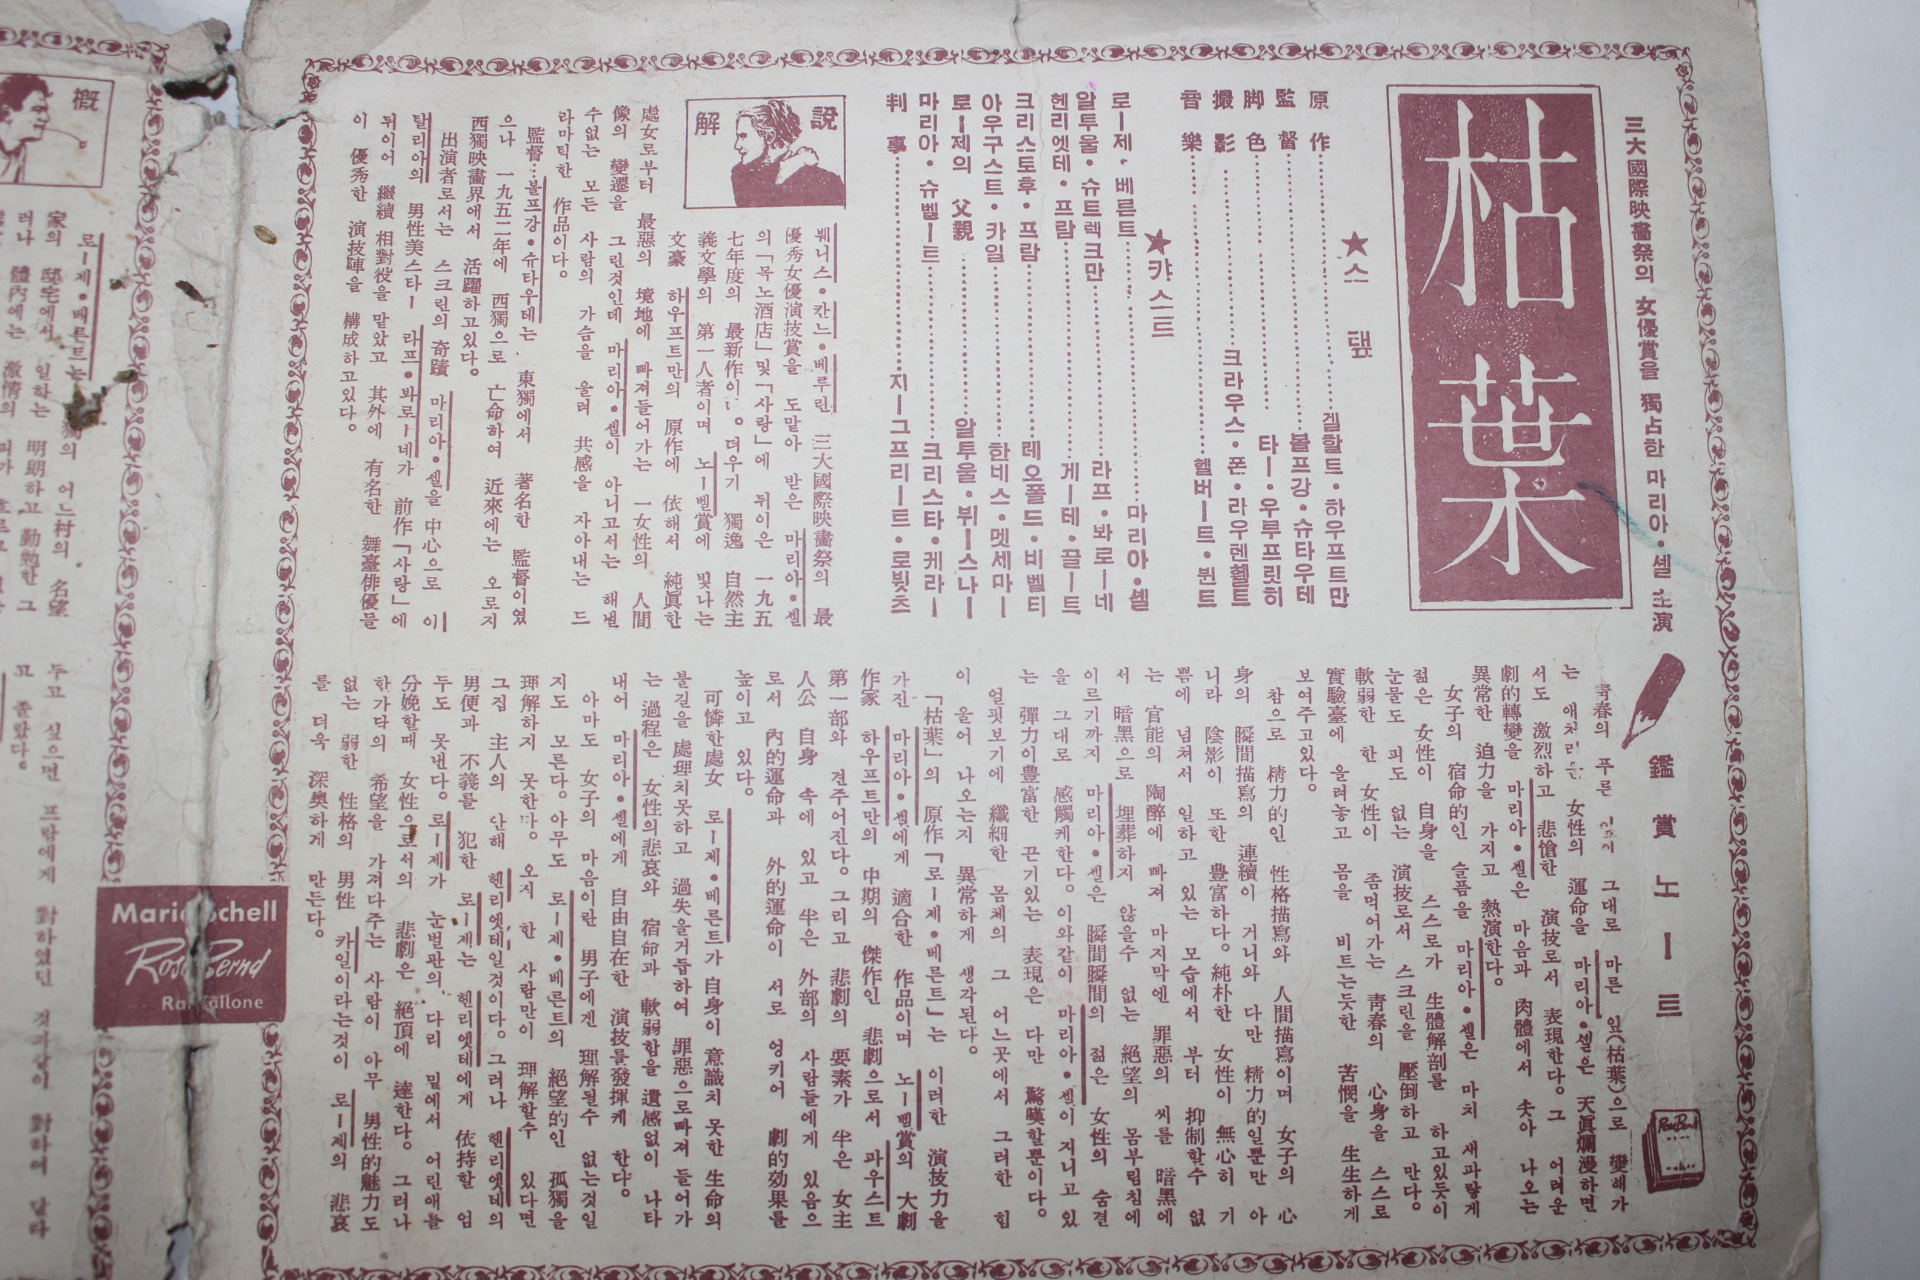 三大國際映畵祭의 女優賞을 獨占한 마리아·셸 主演
枯葉
★스 탶
原作 겔할트·하우프트만
監督 볼프강·슈타우테
脚色 타ー·우루프릿히
撮影 크라우스·폰·라우텐헬트
音樂 헬버ー트·뷘트
★캬스트
로ー제·베른트 마리아·셸
알투울·슈트렉크만 라프·봐로ー네
헨리엣테·프람 게ー테·골ー트
크리스토후·프람 레오폴드·비벨티
아우구스트·카일 한네스·멧세마ー
로ー제의 父親 알투울·뷔ー스나ー
마리아·슈벨ー트 크리스타·케라ー
判事 지ー그프리ー트·로빗츠
解說
붸니스·칸느·베루린 三大國際映畵祭의 最
優秀女優演技賞을 도맡아 받은 마리아·셸
의「목노酒店」및「사랑」에 뒤이은 一九五
七年度의 最新作이다。더우기 獨逸 自然主
義文學의 第一人者이며 노ー벨賞에 빛나는
文豪 하우프트만의 原作에 依해서 純眞한
處女로부터 最惡의 境地에 빠져들어가는 一女性의 人間
像의 變遷을 그린것인데 마리아·셸이 아니고서는 해낼
수없는 모든 사람의 가슴을 울려 共感을 자아내는 드
라마틱한 作品이다。
監督…볼프강·슈타우테는 東獨에서 著名한 監督이였
으나 一九五二年에 西獨으로 亡命하여 近來에는 오로지
西獨映畵界에서 活躍하고있다。
出演者로서는 스크린의 奇蹟 마리아·셸을 中心으로 이
탈리아의 男性美스타ー 라프·봐로ー네가 前作「사랑」에
뒤이어 繼續 相對役을 맡았고 其外에 有名한 舞臺俳優들
이 優秀한 演技陣을 構成하고있다。
鑑賞노ー트
靑春의 푸른 그대로 마른 잎(枯葉)으로 變해가
는 애처러운 女性의 運命을 마리아·셸은 天眞爛漫하면
서도 激烈하고 悲愴한 演技로서 表現한다。그 어려운
劇的轉變을 마리아·셸은 마음과 肉體에서 솟아 나오는
異常한 迫力을 가지고 熱演한다。
女子의 宿命的인 슬픔을 마리아·셸은 마치 새파랗게
젊은 女性이 自身을 스스로가 生體解剖를 하고있듯이
눈물도 피도 없는 演技로서 스크린을 壓倒하고 만다。
軟弱한 한 女性이 좀먹어가는 靑春의 心身을 스스로
實驗臺에 올려놓고 몸을 비트는듯한 苦憫을 生生하게
보여주고있다。
참으로 精力的인 性格描寫와 人間描寫이며 女子의 心
身의 瞬間描寫의 連續이 거니와 다만 精力的일뿐만 아
니라 陰影이 또한 豊富하다。純朴한 女性이 無心히 기
쁨에 넘쳐서 일하고 있는 모습에서 부터 抑制할수 없
는 官能의 陶醉에 빠져 마지막엔 罪惡의 씨를 暗黑에
서 暗黑으로 埋葬하지 않을수 없는 絕望의 몸부림침에
이르기까지 마리아·셸은 瞬間瞬間의 젊은 女性의 숨결
을 그대로 感觸케한다。이와같이 마리아·셸이 지니고 있
는 彈力이豊富한 끈기있는 表現은 다만 驚嘆할뿐이다。
얼핏보기에 纖細한 몸체의 그 어느곳에서 그러한 힘
이 울어 나오는지 異常하게 생각된다。
「枯葉」의 原作「로ー제·베른트」는 이러한 演技力을
가진 마리아·셸에게 適合한 作品이며 노ー벨賞의 大劇
作家 하우프트만의 中期의 傑作인 悲劇으로서 파우스트
第一部와 견주어진다。그리고 悲劇의 要素가 半은 女主
人公 自身 속에 있고 半은 外部의 사람들에게 있음으
로서 內的運命과 外的運命이 서로 엉키어 劇的効果를
높이고 있다。
可憐한處女 로ー제·베른트가 自身이 意識치 못한 生命의
불길을 處理치못하고 過失을거듭하여 罪惡으로빠져 들어가
는 過程은 女性의悲哀와 宿命과 軟弱함을 遺感없이 나타
내어 마리아·셸에게 自由自在한 演技를發揮케 한다。
아마도 女子의 마음이란 男子에겐 理解될수 없는것일
지도 모른다。아무도 로ー제·베른트의 絕望的인 孤獨을
理解하지 못한다。오지 한 사람만이 理解할수 있다면
그집 主人의 안해 헨리엣테일것이다。그러나 헨리엣테의
男便과 不義를 犯한 로ー제는 헨리엣테에게 依持할 업
두도 못낸다。로ー제가 눈벌판의 다리 밑에서 어린애를
分娩할때 女性으로서의 悲劇은 絕頂에 達한다。그러나
한가닥의 希望을 가져다주는 사람이 아무 男性的魅力도
없는 弱한 性格의 男性 카일이라는것이 로ー제의 悲哀
를 더욱 深奧하게 만든다。
Maria Schell
Rose Bernd
Raf Vallone
槪
로ー제·베른트는 獨의 어느村의 名望
家의 邸宅에서 일하는 明朗하고 勤勉한 그
러나 體內에는 激情의
두고 싶으면 프람에게 對하였던
고 졸랐다。